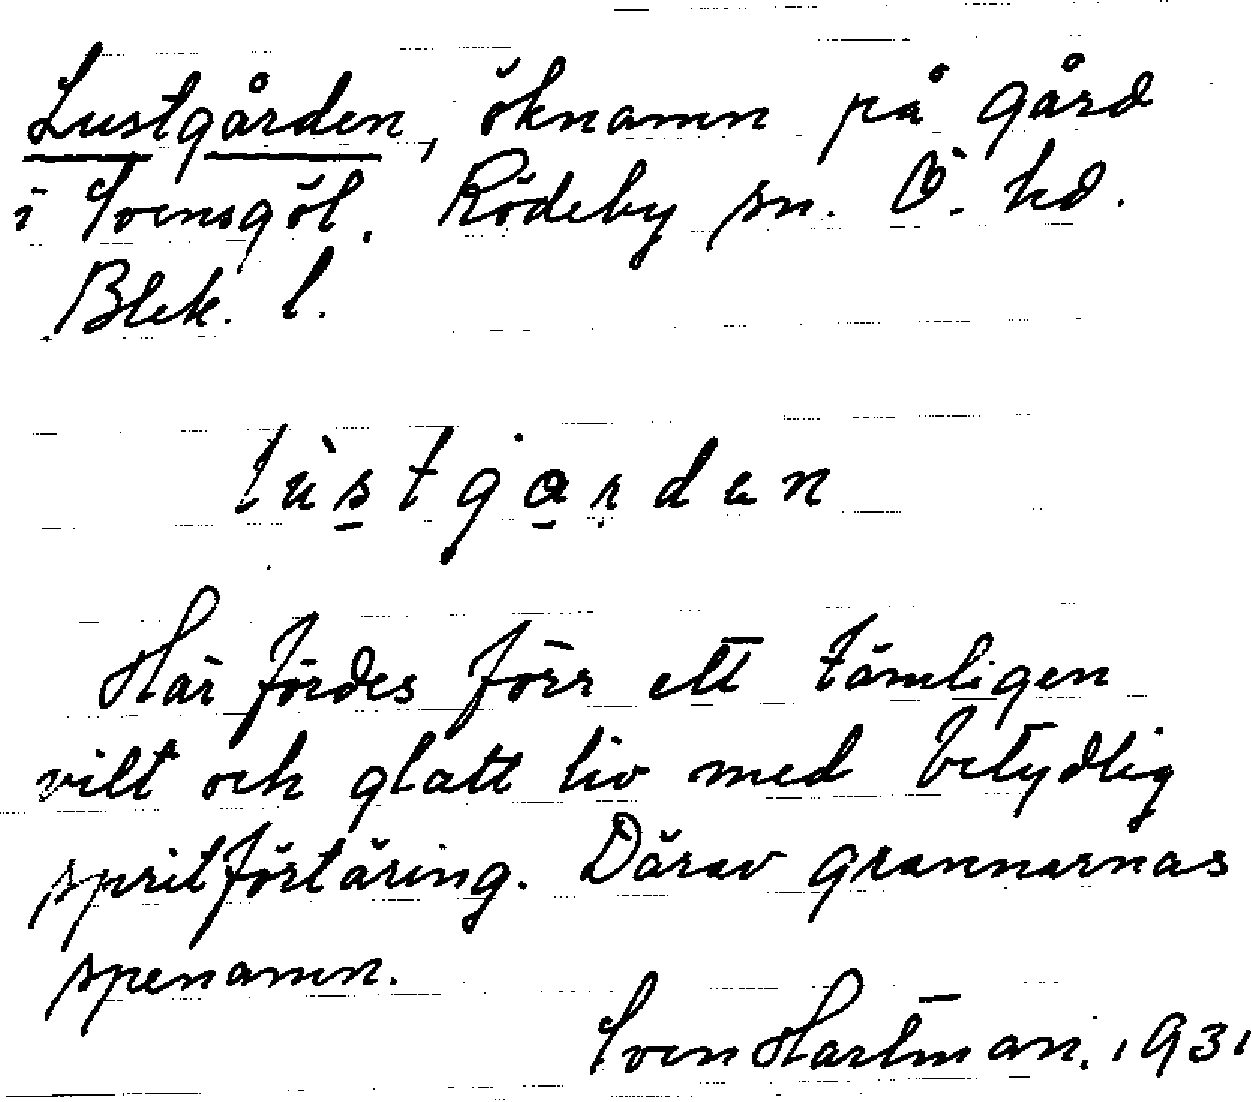 Lustgården, öknamn på gård
i Svensgöl. Rödeby sn. Ö. hd.
Blek. l.
lùstgarden
Här fördes förr ett tämligen
vilt och glatt liv med betydlig
spritförtäring. Därav grannarnas
spenamn.
Sven Hartman. 1931